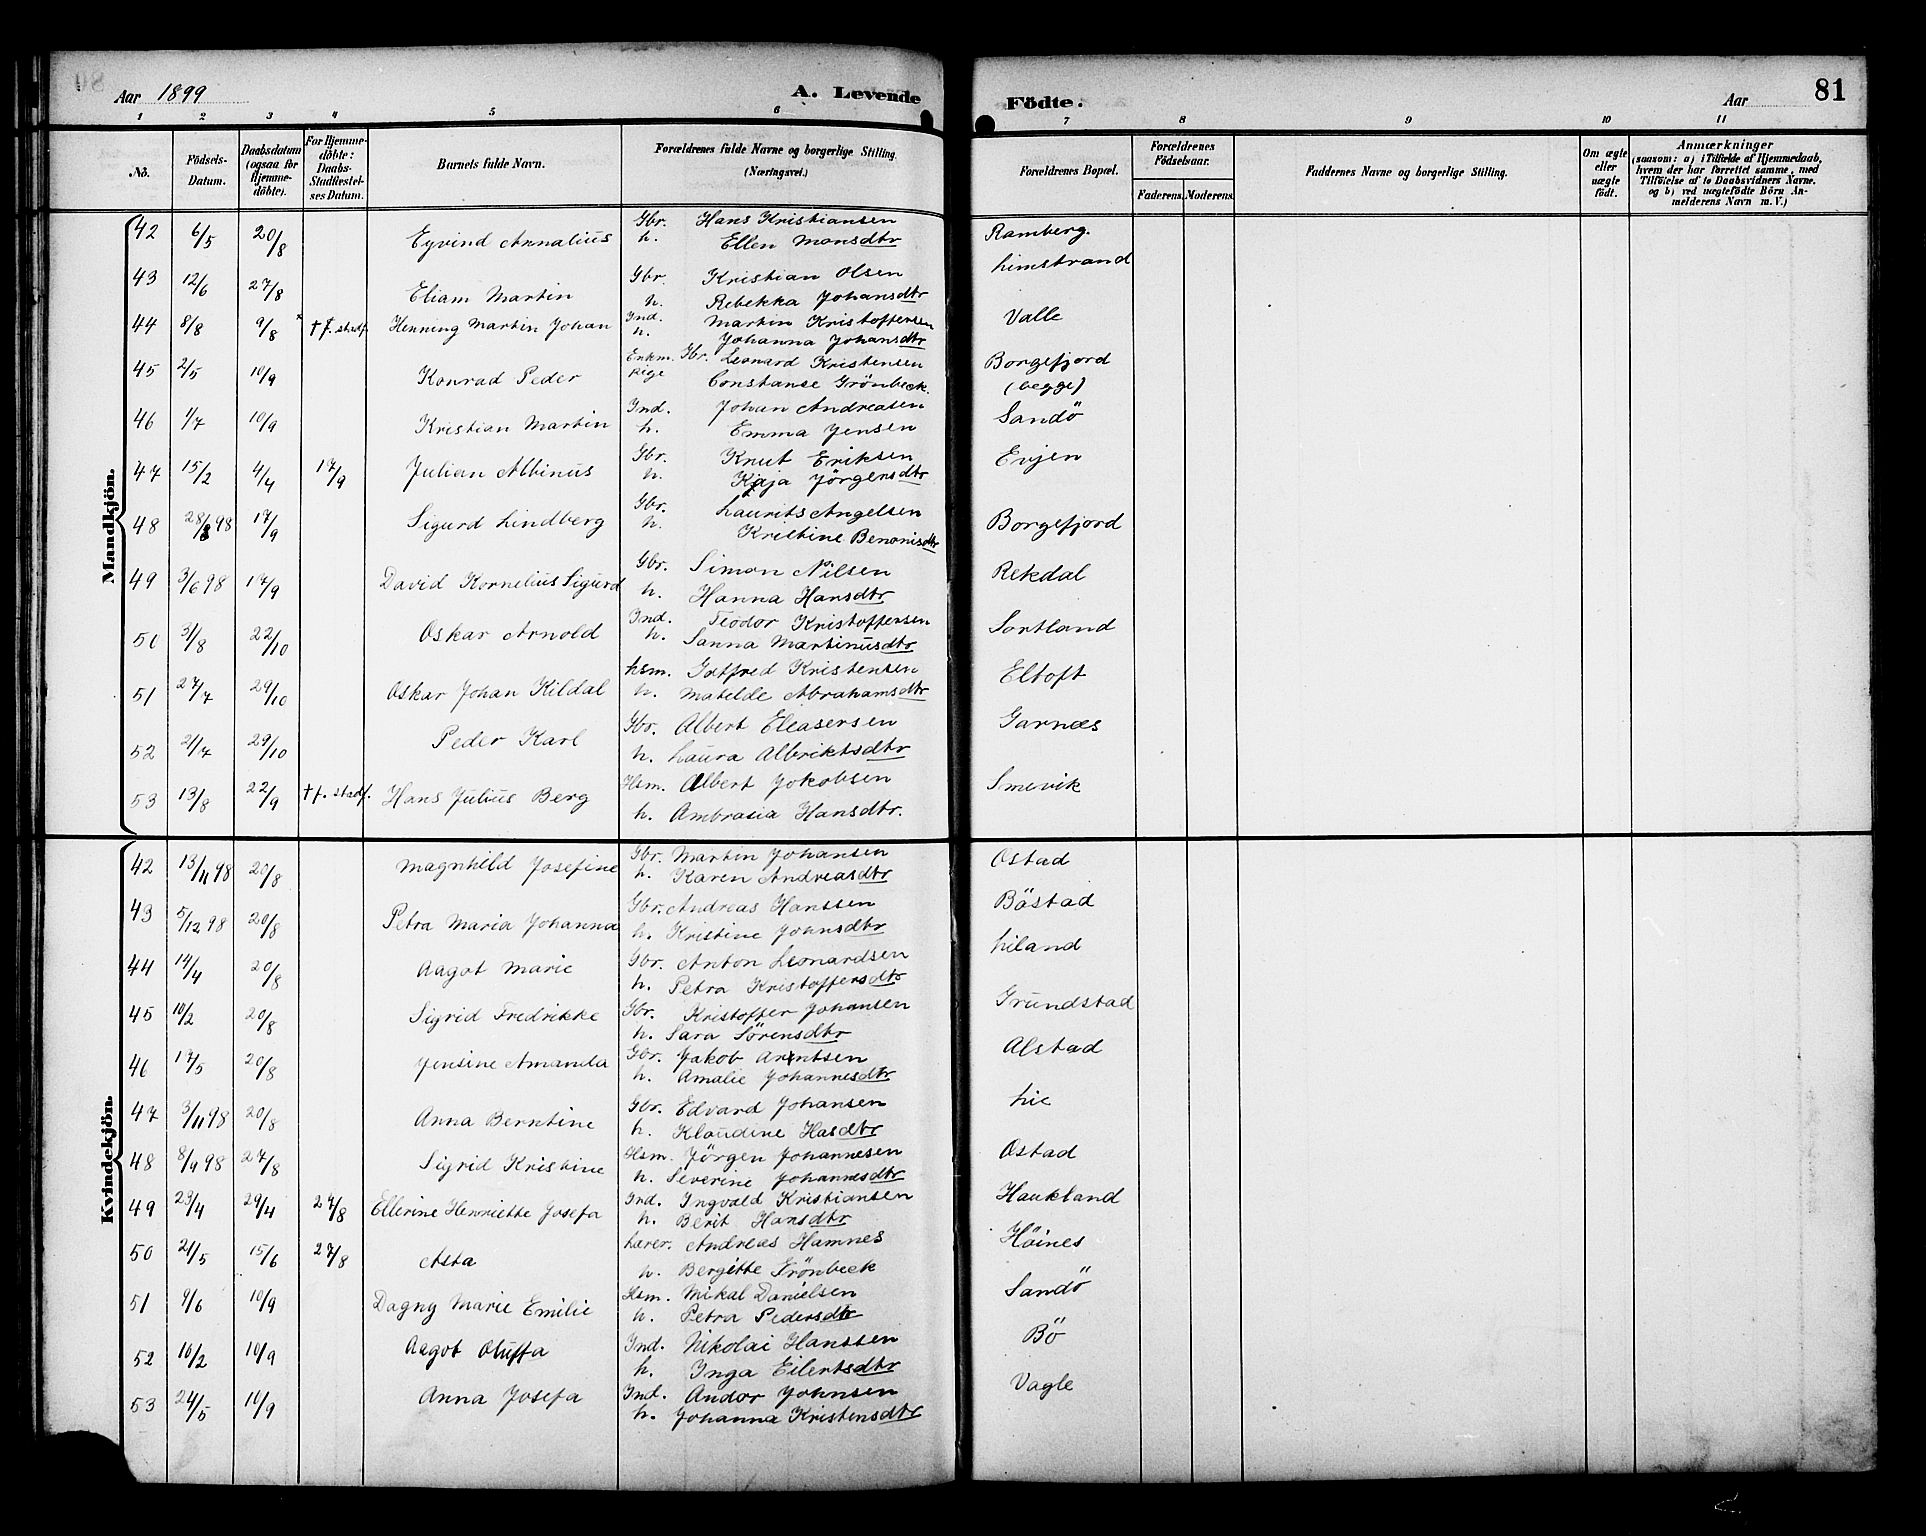 Aar 1899 A. Levende Födte. Aar 81
1 2 3 4 5 6 7 8 9 10 11
No. Födsels-Datum. Daabsdatum (ogsaa for Hjemmedöbte). For Hjemmedöbte: Daabs-Stadfæstelses Datum. Barnets fulde Navn. Forældrenes fulde Navne og borgerlige Stilling. (Næringsvei.) Forældrenes Bopæl. Forældrenes Födselsaar. Faderens. Moderens. Faddernes Navne og borgerlige Stilling. Om ægte eller uægte födt. Anmærkninger (saasom: a) i Tilfælde af Hjemmedaab, hvem der har forrettet samme, med Tilföielse af to Daabsvidners Navne, og b) ved uægtefödte Börn Anmelderens Navn m. V.)
Mandkjön.
42 6/5 20/8 Eyvind Annalius Gbr. Hans Kristiansen Ramberg.
h. Ellen Monsdtr
43 12/6 27/8 Eliam Martin Gbr. Kristian Olsen Limstrand
h. Rebekka Johansdtr
44 8/8 9/8 † f. stadf. Henning Martin Johan Ind. Martin Kristoffersen Valle
h. Johanna Johansdtr
45 2/5 10/9 Konrad Peder Enkm. Gbr. Leonard Kristensen Borgefjord
Pige Constanse Grönbeck. (begge)
46 1/7 10/9 Kristian Martin Ind. Johan Andreasen Sandö
h. Emma Jensen
47 15/2 4/4 17/9 Julian Albinus Gbr. Knut Eriksen Evjen
h. Kaja Jörgensdtr
48 28/8 98 17/9 Sigurd Lindberg Gbr. Laurits Angelsen Borgefjord
h. Kristine Benonisdtr
49 3/6 98 17/9 David Kornelius Sigurd Gbr. Simon Nilsen Rekdal
h. Hanna Hansdtr
50 3/8 22/10 Oskar Arnold Ind. Teodor Kristoffersen Sortland
h. Sanna Martinusdtr
51 27/7 29/10 Oskar Johan Kildal hsm. Gotfred Kristensen Eltoft
h. Matelde Abrahamsdtr
52 21/7 29/10 Peder Karl Gbr. Albert Eleasersen Garnæs
h. Laura Albriktsdtr
53 13/8 22/9 † f. stadf. Hans Julius Berg Hsm. Albert Jakobsen Smevik
h. Ambrasia Hansdtr.
Kvindekjön.
42 13/11 98 20/8 Magnhild Josefine Gbr. Martin Johansen Ostad
h. Karen Andreasdtr
43 5/12 98 20/8 Petra Maria Johanna Gbr. Andreas Hanssen Böstad
h. Kristine Johnsdtr
44 14/4 20/8 Aagot Marie Gbr. Anton Leonardsen Liland
h. Petra Kristoffersdtr
45 10/2 20/8 Sigrid Fredrikke Gbr. Kristoffer Johansen Grundstad
h. Sara Sörensdtr
46 17/5 20/8 Jensine Amanda Gbr. Jakob Arntsen Alstad
h. Amalie Johannesdtr
47 3/11 98 20/8 Anna Berntine Gbr. Edvard Johansen Lie
h. Klaudine Hasdtr
48 8/9 98 27/8 Sigrid Kristine Hsm. Jörgen Johannesen Ostad
h. Severine Johannesdtr
49 23/4 29/4 27/8 Ellerine Henriette Josefa Ind. Ingvald Kristiansen Haukland
h. Berit Hansdtr
50 21/5 15/6 27/8 Asta Lærer. Andreas Hamnes Höines
h. Bergitte Grönbeck
51 9/6 10/9 Dagny Marie Emilie Hsm. Mikal Danielsen Sandö
h. Petra Pedersdtr
52 10/2 10/9 Aagot Oluffa Ind. Nikolai Hanssen Bö
h. Inga Eilertsdtr
53 24/5 10/9 Anna Josefa Ind. Andor Johnsen Vagle
h. Johanna Kristensdtr